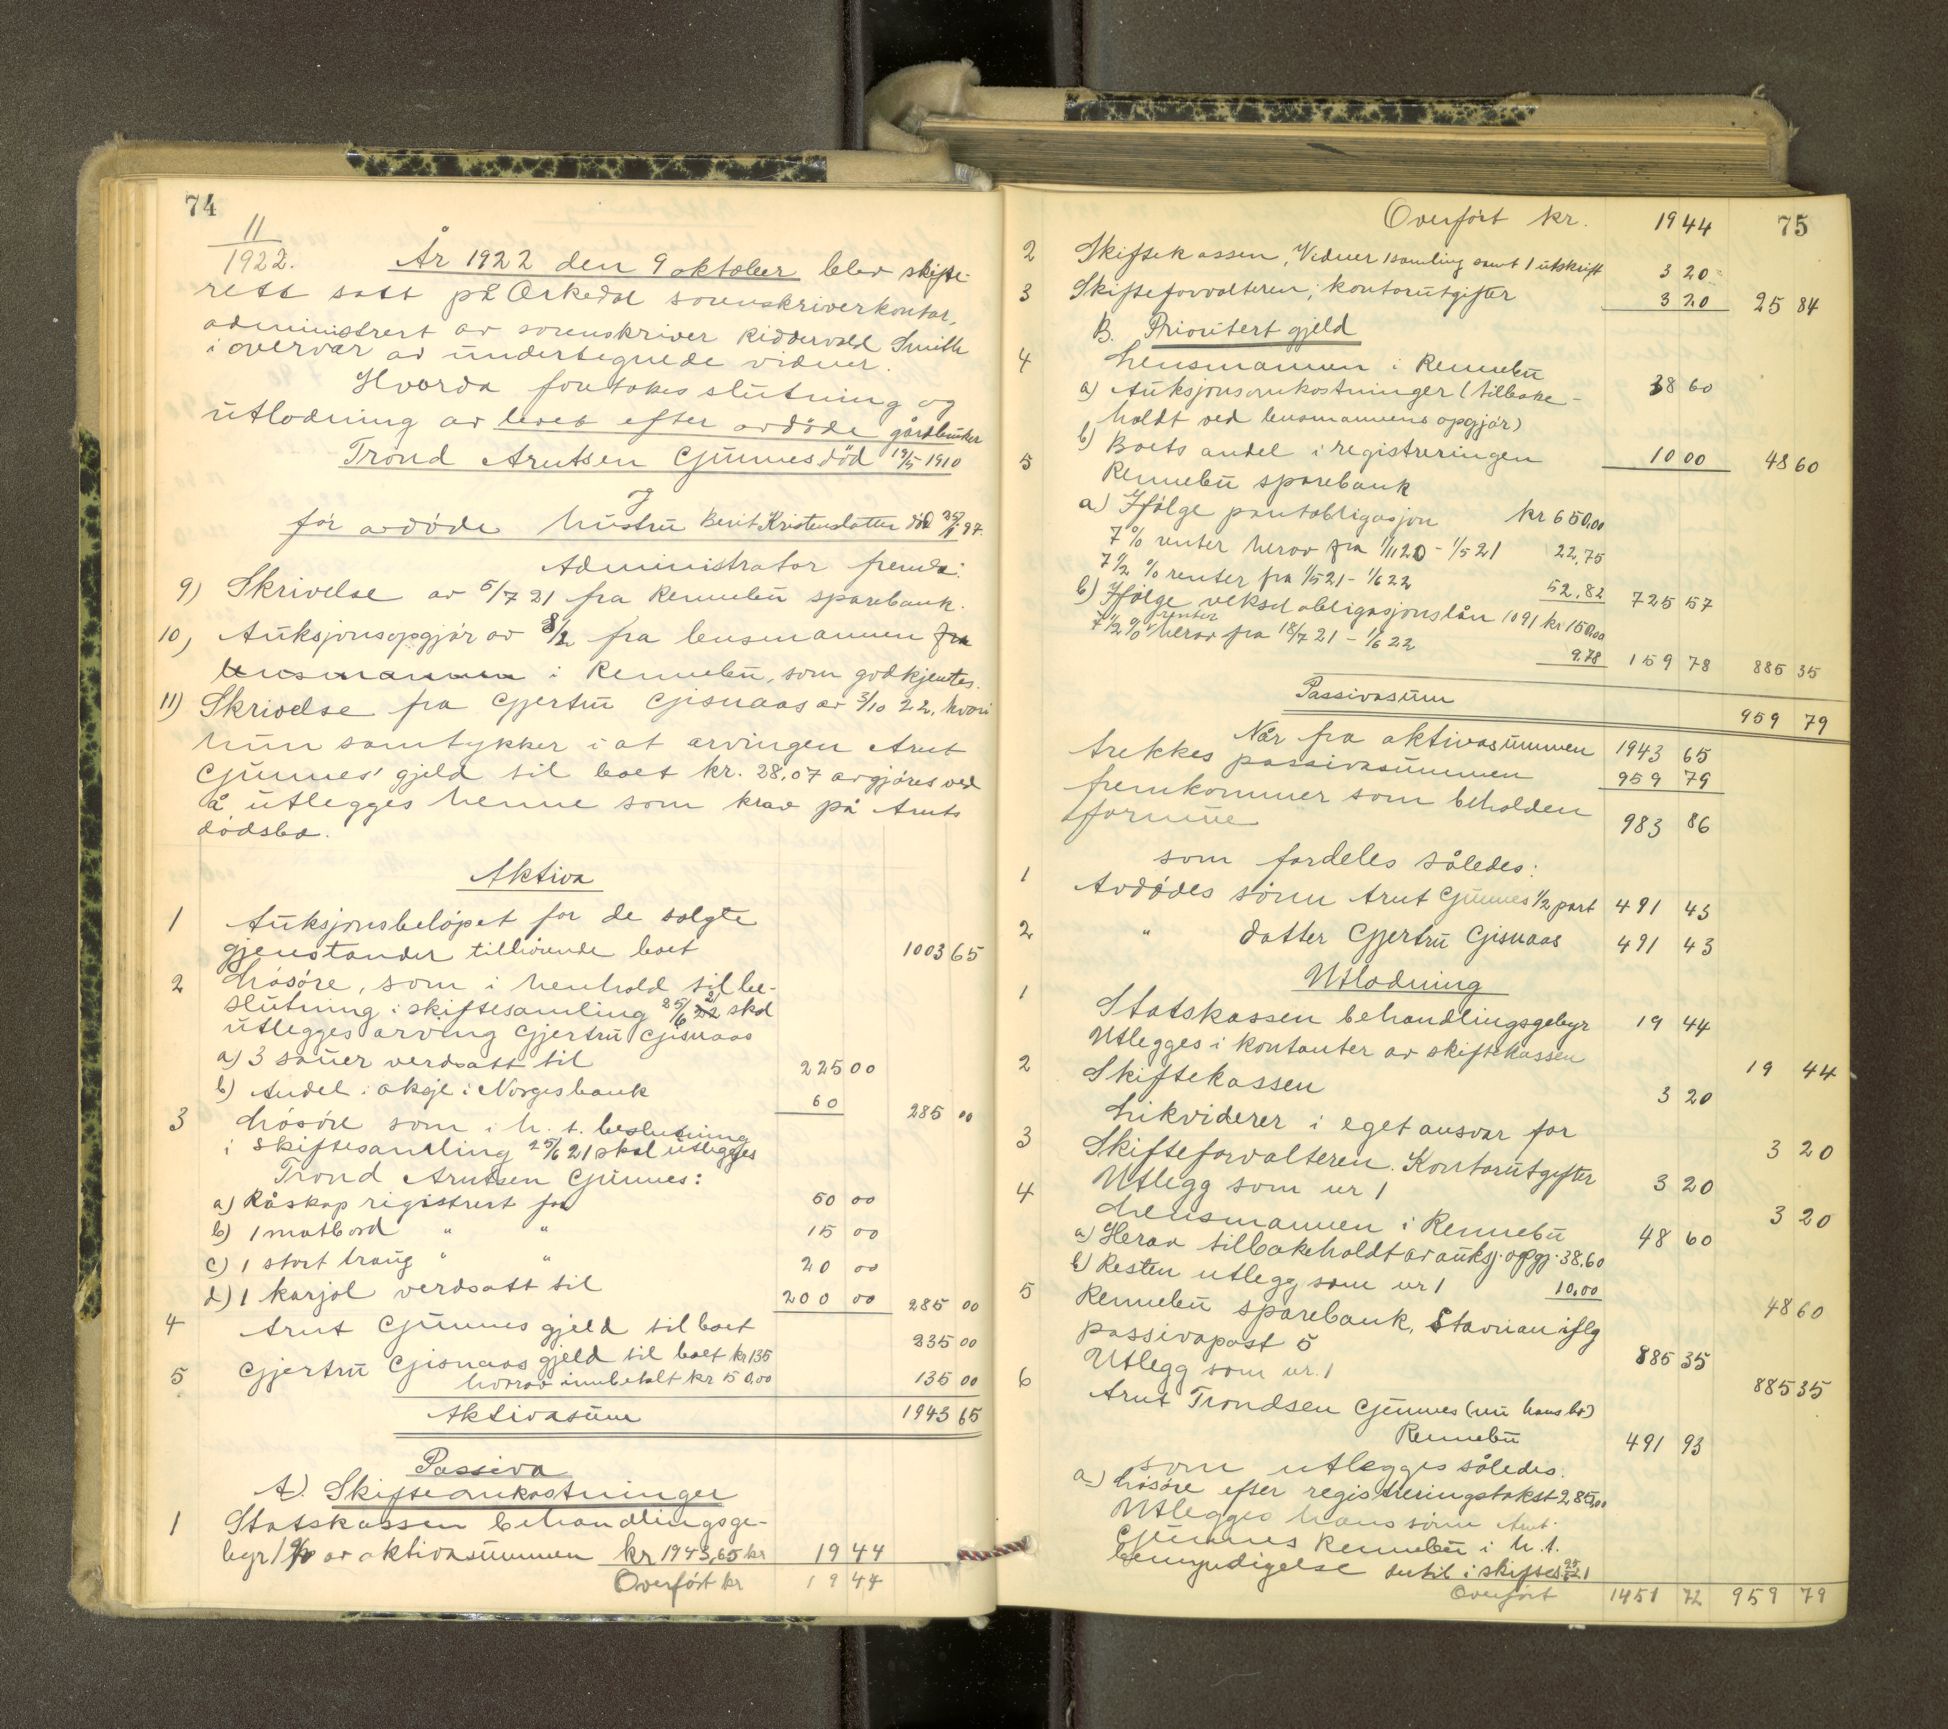 74
11
1922.
År 1922 den 9 oktober blev skifte-
rett satt på Orkedal sorenskriverkontor,
administrert av sorenskriver Riddervold Smith
i overvær av undertegnede vidner.
Hvorda foretokes slutning og
utlodning av boet efter avdöde gårdbruker
Trond Arntsen Gunnes död 19/5 1910
før avdöde hustru Berit Kristensdatter död 97.
Administrator freml:
9) Skrivelse av 5/7 21 fra Rennebu sparebank.
10) Auksjonsopgjör av 8/2 fra lensmannen fra
lensmannen i Rennebu, som godkjentes.
11) Skrivelse fra Gjertru Gisnaas av 3/10 22, hvori
hun samtykker i at arvingen Arnt
Gunnes' gjeld til boet kr. 28.07 avgjöres ved
å utlegges henne som krav på Arnts
dödsbo.
Aktiva
1 Auksjonsbelöpet for de solgte
gjenstander tilhörende boet 1003 65
2 Lösöre, som i henhold til be-
slutning i skiftesamling 25/6 21 skal
utlegges arving Gjertru Gisnaas
a) 3 sauer verdsatt til 225 00
b) Andel i aksje i Norges bank 60 285 00
3 Lösöre som i h. t. beslutning
i skiftesamling 25/6 21 skal utlegges
Trond Arntsen Gunnes:
a) Råskap rigistrert for 50 00
b) 1 matbord " " 15 00
c) 1 stort traug " " 20 00
d) 1 karjol verdsatt til 200 00 285 00
4 Arnt Gunnes gjeld til boet 235 00
5 Gjertru Gisnaas gjeld til boet kr 135
hvorav innbetalt kr 50,00 135 00
Aktivasum 1943 65
Passiva
A). Skifteomkostninger
1 Statskassen behandlingsge-
byr 1 % av aktivasummen kr 1943,65 kr 19 44
Overfört kr 19 44
75
Overfört kr. 19 44
2 Skiftekassen, Vidner 1 samling samt 1 utskrift 3 20
3 Skifteforvalteren, kontorutgifter 3 20 25 84
B. Prioritert gjeld
4 Lensmannen i Rennebu
a) Auksjonsomkostninger (tilbake- 38 60
holdt ved lensmannens opgjör)
b) Boets andel i registreringen 10 00 48 60
5 Rennebu sparebank
a) Ifölge pantobligasjon kr 650,00
7 % renter herav fra 1/11 20 - 1/5 21 22,75
7 1/2 % renter fra 1/5 21 - 1/6 22 52,82 725 57
b) Ifölge veksel obligasjonslån 1091 kr 150,00
7 1/2 % renter herav fra 18/7 21 - 1/6 22 9.78 159 78 885 35
Passivasum 959 79
Når fra aktivasummen 1943 65
trekkes passivasummen 959 79
fremkommer som beholden
formue 983 86
som fordeles således:
1 Avdödes sönn Arnt Gunnes 1/2 part 491 43
2 " datter Gjertru Gisnaas 491 43
Utlodning
1 Statskassen behandlingsgebyr 19 44
Utlegges i kontanter av skiftekassen 19 44
2 Skiftekassen 3 20
Likviderer i eget ansvar for 3 20
3 Skifteforvalteren. Kontorutgifter 3 20
Utlegg som nr 1 3 20
4 Lensmannen i Rennebu 48 60
a) Herav tilbakeholdt av auksj. opgj. 38,60
b) Resten utlegg som nr 1 10,00 48 60
5 Rennebu sparebank, Stavnan iflg
passivapost 5 885 35
Utlegg som nr. 1 885 35
6 Arnt Trondsen Gunnes (nu hans bo)
Rennebu 491 93
som utlegges således.
a) Lösöre efter registreringstakst 285,00
Utlegges hans sönn Arnt
Gunnes Rennebu i h. t.
bemyndigelse dertil i skiftes. 21
Overfört 1451 72 959 79